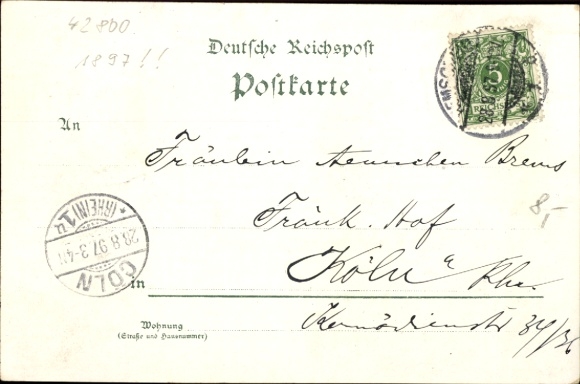 42800
1897!!
Deutsche Reichspost
Postkarte
An
Fräulein Aennchen Brems
Fränk. Hof
8,-
Köln a/ Rhe.
in
Komödienstr 34/36
Wohnung
(Straße und Hausnummer)
CÖLN
(RHEIN) 1u
28.8.97.3-4N
5